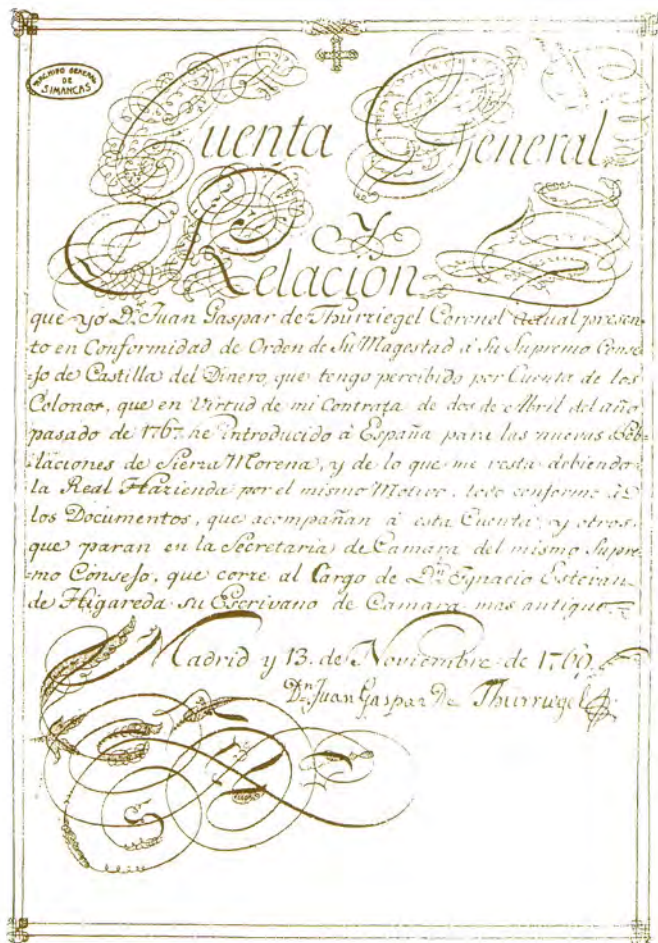 ARCHIVO GENERAL
DE
SIMANCAS
Cuenta General
Y
Relacion
que yo Dn. Juan Gaspar de Thürriegel Coronel actual presen-
to en Conformidad de Orden de Su Magestad â Su Supremo Conse-
-jo de Castilla del Dinero, que tengo percibido por Cuenta de los
Colonos, que en Virtud de mi Contrata de dos de Abril del año
pasado de 1767 he introducido â España para las nuevas Pob-
-laciones de Sierra Morena, y de lo que me resta debiendo
la Real Hazienda por el mismo Motivo, todo conforme â
los Documentos, que acompañan â esta Cuenta, y otros,
que paran en la Secretaria de Camara del mismo Supre-
-mo Consejo, que corre al Cargo de Dn. Ygnacio Estevan
de Higareda su Escrivano de Camara mas antiguo.
Madrid y 13. de Noviembre de 1769.
Dn. Juan Gaspar De Thürriegel